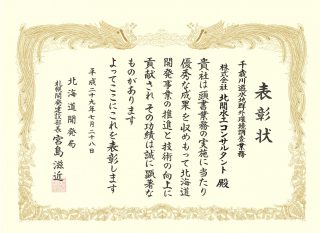 表彰状
千歳川遊水地群外環境調査業務
株式会社 北開水工コンサルタント 殿
貴社は頭書業務の実施に当たり
優秀な成果を収めもって北海道
開発事業の推進と技術の向上に
貢献され その功績は誠に顕著な
ものがあります
よってここにこれを表彰します
平成二十九年七月二十八日
北海道開発局
札幌開発建設部長 宮島滋近